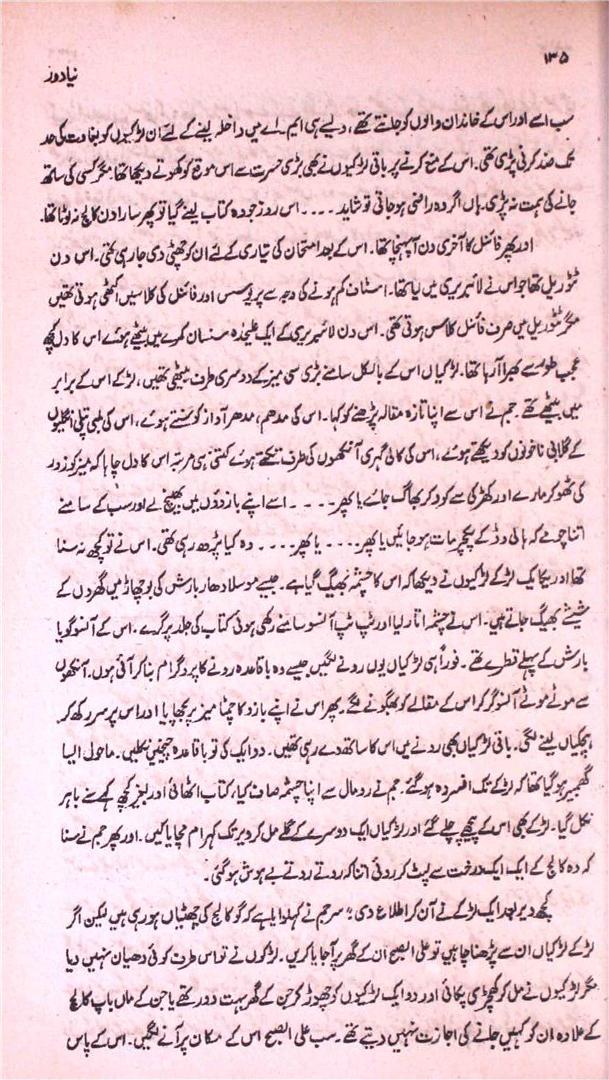 ۱۳۵
نیا دور
سب اسے اور اس کے خاندان والوں کو جانتے تھے، ویسے ہی ایم۔ اے میں داخلہ لینے کے لئے ان لڑکیوں کو بغاوت کی حد
تک ضد کرنی پڑی تھی۔ اس کے منع کرنے پر باقی لڑکیوں نے بھی بڑی حسرت سے اس موقع کو کھوتے دیکھا تھا مگر کسی کی ساتھ
جانے کی ہمت نہ پڑی۔ ہاں اگر وہ راضی ہو جاتی تو شاید ۔۔۔۔ اس روز جو وہ کتاب لینے گیا تو پھر سارا دن کالج نہ لوٹا تھا۔
اور پھر فائنل کا آخری دن آ پہنچا تھا۔ اس کے بعد امتحان کی تیاری کے لئے ان کو چھٹی دی جا رہی تھی۔ اس دن
ٹٹوریل تھا جو اس نے لائبریری میں لیا تھا۔ اسٹاف کم ہونے کی وجہ سے پریویس اور فائنل کی کلاسیں اکٹھی ہوتی تھیں
مگر ٹٹوریل میں صرف فائنل کلاس ہوتی تھی۔ اس دن لائبریری کے ایک علیحدہ سنسان کمرے میں بیٹھے ہوئے اس کا دل کچھ
عجب طور سے بھرا آ رہا تھا۔ لڑکیاں اس کے بالکل سامنے بڑی سی میز کے دوسری طرف بیٹھی تھیں، لڑکے اس کے برابر
میں بیٹھے تھے۔ جم نے اس سے اپنا تازہ مقالہ پڑھنے کو کہا۔ اس کی مدھم، مدھر آواز کو سنتے ہوئے، اس کی لمبی پتلی انگلیوں
کے گلابی ناخونوں کو دیکھتے ہوئے، اس کی کالی گہری آنکھوں کی طرف تکتے ہوئے کتنی ہی مرتبہ اس کا دل چاہا کہ میز کو زور
کی ٹھوکر مارے اور کھڑکی سے کود کر بھاگ جائے یا پھر ۔۔۔۔ اسے اپنے بازوؤں میں بھینچ لے اور سب کے سامنے
اتنا چومے کہ ہالی وڈ کے پکچر مات ہو جائیں یا پھر ۔۔۔۔ یا پھر ۔۔۔۔ وہ کیا پڑھ رہی تھی۔ اس نے تو کچھ نہ سنا
تھا اور یکایک لڑکے لڑکیوں نے دیکھا کہ اس کا چشمہ بھیگ گیا ہے۔ جیسے موسلا دھار بارش کی بوچھاڑ میں گھروں کے
شیشے بھیگ جاتے ہیں۔ اس نے چشمہ اتار لیا اور ٹپ ٹپ آنسو سامنے رکھی ہوئی کتاب کی جلد پر گرے۔ اس کے آنسو گویا
بارش کے پہلے قطرے تھے۔ فوراً ہی لڑکیاں یوں رونے لگیں جیسے وہ باقاعدہ رونے کا پروگرام بنا کر آئی ہوں۔ آنکھوں
سے موٹے موٹے آنسو گر کر اس کے مقالے کو بھگونے لگے۔ پھر اس نے اپنے بازو کا چمٹا میز پر بچھایا اور اس پر سر رکھ کر
ہچکیاں لینے لگی۔ باقی لڑکیاں بھی رونے میں اس کا ساتھ دے رہی تھیں۔ دو ایک کی تو باقاعدہ چیخیں نکلیں۔ ماحول ایسا
گھمبیر ہو گیا تھا کہ لڑکے تک افسردہ ہو گئے۔ جم نے رومال سے اپنا چشمہ صاف کیا، کتاب اٹھائی اور بغیر کچھ کہے سنے باہر
نکل گیا۔ لڑکے بھی اس کے پیچھے چلے گئے اور لڑکیاں ایک دوسرے کے گلے مل کر دیر تک کہرام مچایا کیں۔ اور پھر جم نے سنا
کہ وہ کالج کے ایک ایک درخت سے لپٹ کر روئی اتنا کہ روتے روتے بے ہوش ہو گئی۔
کچھ دیر بعد ایک لڑکے نے آن کر اطلاع دی؛ سر جم نے کہلوایا ہے کہ گو کالج کی چھٹیاں ہو رہی ہیں لیکن اگر
لڑکے لڑکیاں ان سے پڑھنا چاہیں تو علی الصبح ان کے گھر پر آ جایا کریں۔ لڑکوں نے تو اس طرف کوئی دھیان نہیں دیا
مگر لڑکیوں نے مل کر کھچڑی پکائی اور دو ایک لڑکیوں کو چھوڑ کر جن کے گھر بہت دور تھے یا جن کے ماں باپ کالج
کے علاوہ ان کو کہیں جانے کی اجازت نہیں دیتے تھے۔ سب علی الصبح اس کے مکان پر آنے لگیں۔ اس کے پاس